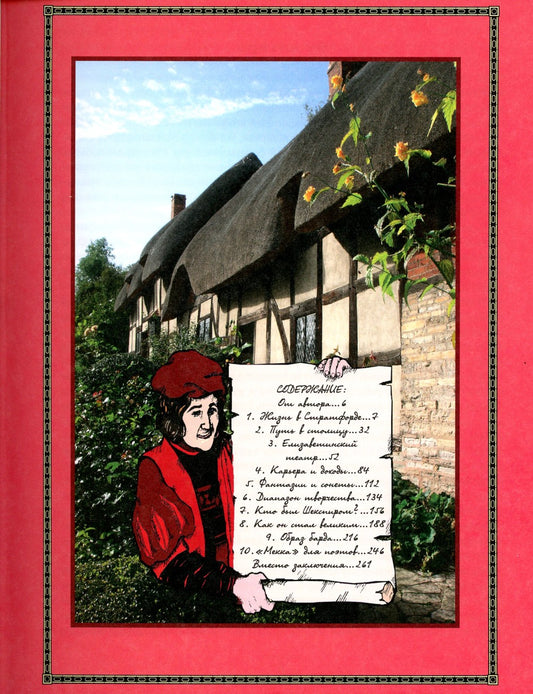 СОДЕРЖАНИЕ:
От автора...6
1. Жизнь в Стратфорде...7
2. Путь в столицу...32
3. Елизаветинский
театр...52
4. Карьера и доходы...84
5. Фантазии и сонеты...112
6. Диапазон творчества...134
7. Кто был Шекспиром? ...156
8. Как он стал великим...188
9. Образ барда...216
10. «Мекка» для поэтов...246
Вместо заключения...261